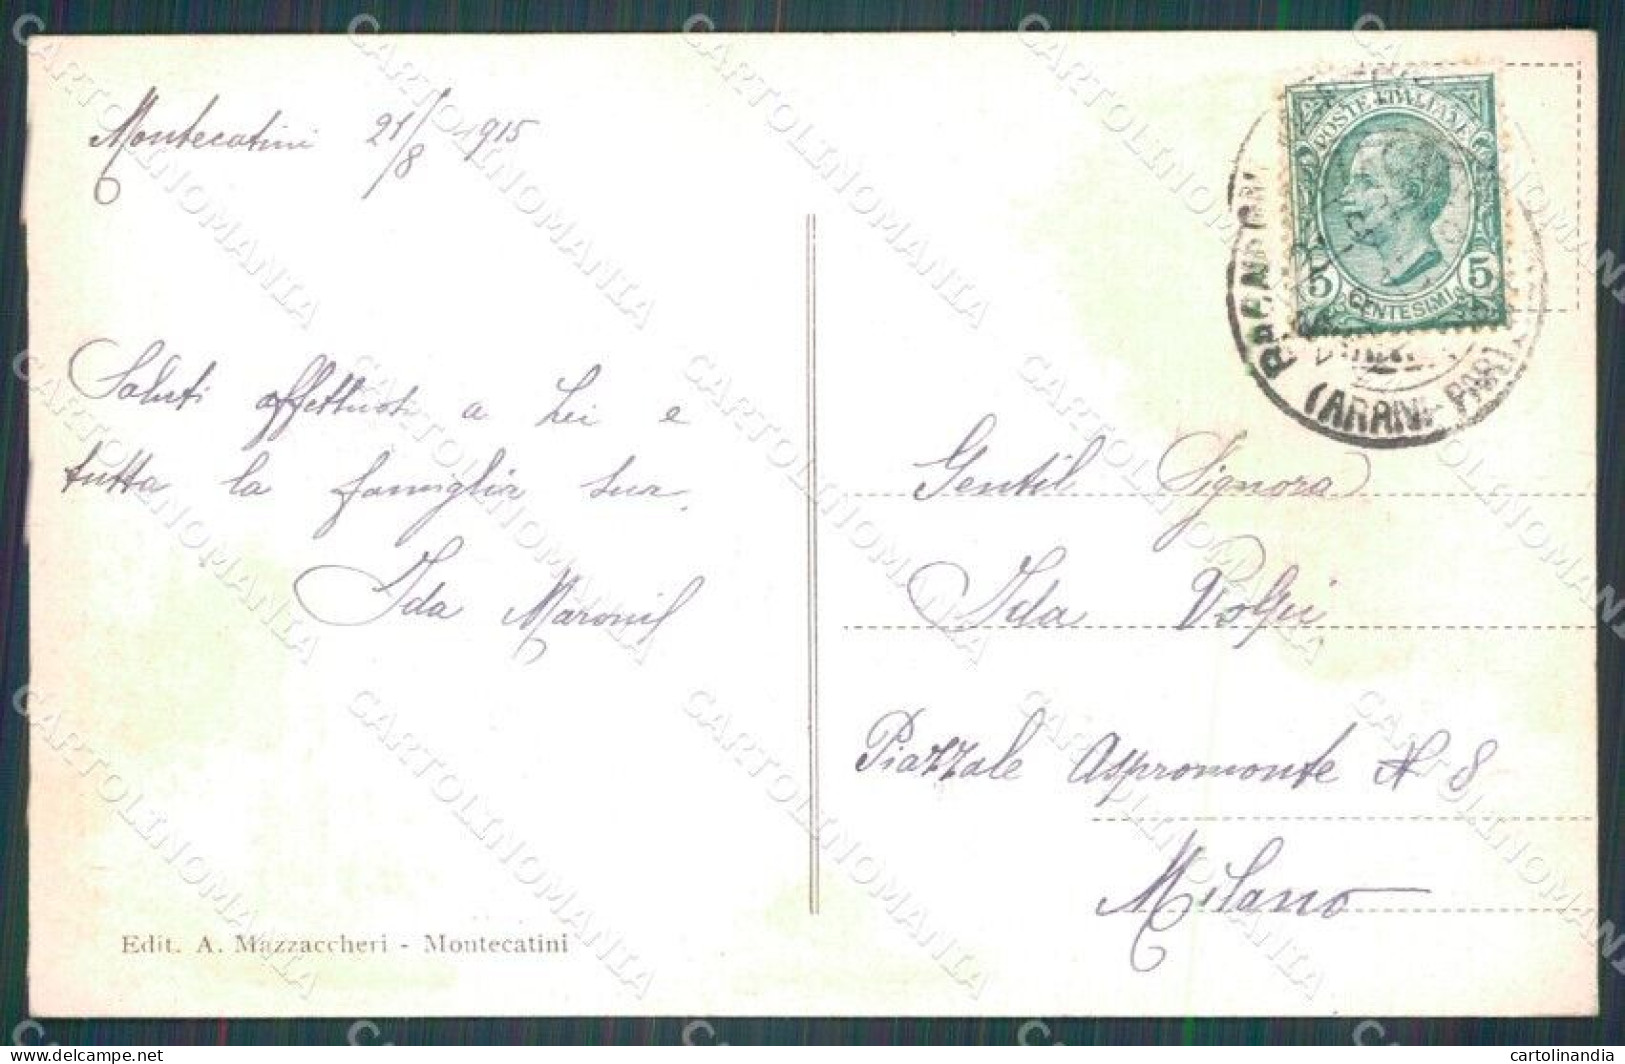 Montecatini 21/8 1915
POSTE ITALIANE
5 5
CENTESIMI
(ARANI-PARI
Saluti affettuosi a Lei e
tutta la famiglia sua.
Ida
Gentil Signora
Ida Volpi
Piazzale Aspromonte N 8
Milano
Edit. A. Mazzaccheri - Montecatini
CARTOLINOMANIA
delcampe.net
cartolinandia